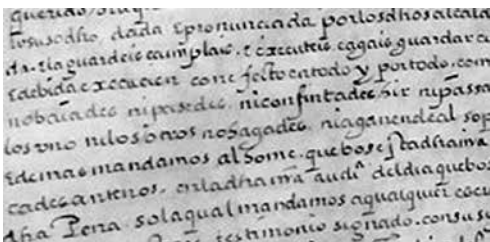 querido
lo susodho, dada Epronunciada por los dhos alcald
da. ria guardeis ecumplais. E executeis. e gagais guardar c
E debida execucion con efecto en todo y por todo. com
no baiades ni pasedes. ni consintades hir ni passa
los uno ni los otros no fagades ni agan endeal
E demas mandamos al home. que bos
cades ante nos. en la dha mia audia. del dia que bos
dha Pena. so la qual mandamos a qualquier
testimonio signado. con su